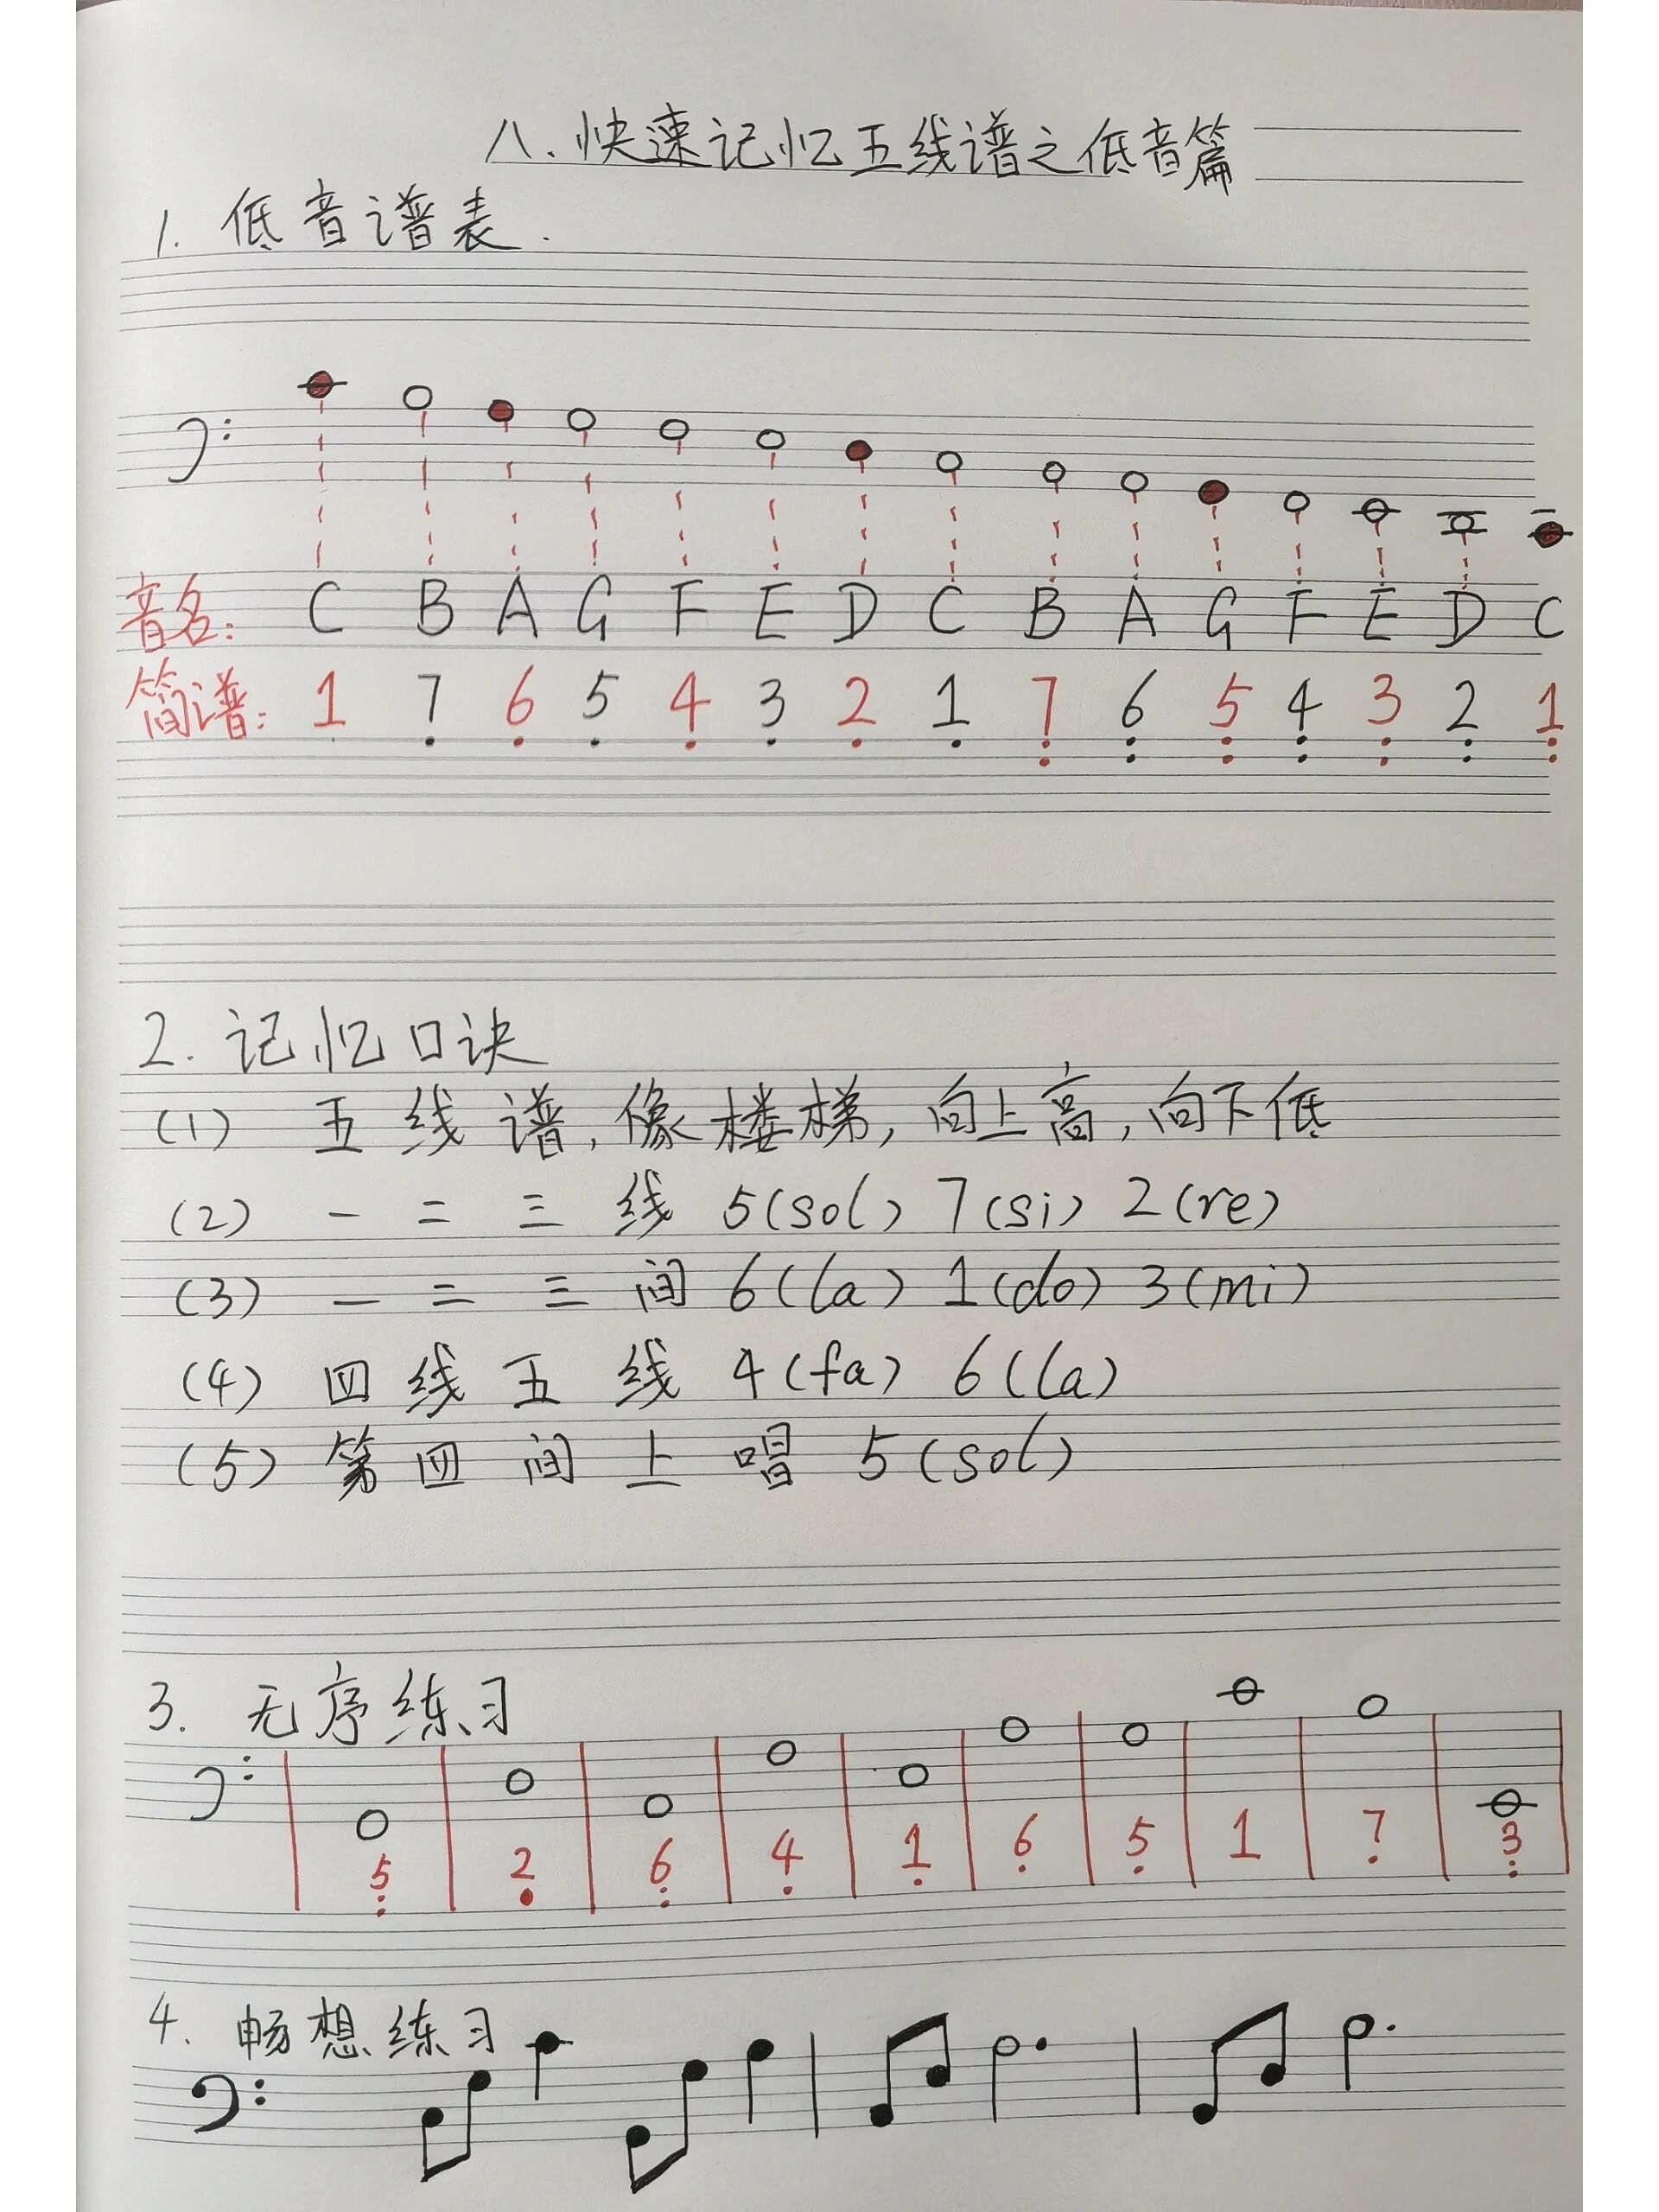 八.快速记忆五线谱之低音篇
1. 低音谱表.
音名: C B A G F E D C B A G F E D C
简谱: 1 7 6 5 4 3 2 1 7 6 5 4 3 2 1
2. 记忆口诀
(1) 五线谱,像楼梯,向上高,向下低
(2) 一二三线 5(sol) 7(si) 2(re)
(3) 一二三间 6(la) 1(do) 3(mi)
(4) 四线五线 4(fa) 6(la)
(5) 第四间上唱 5(sol)
3. 无序练习
5 2 6 4 1 6 5 1 7 3
4. 畅想练习